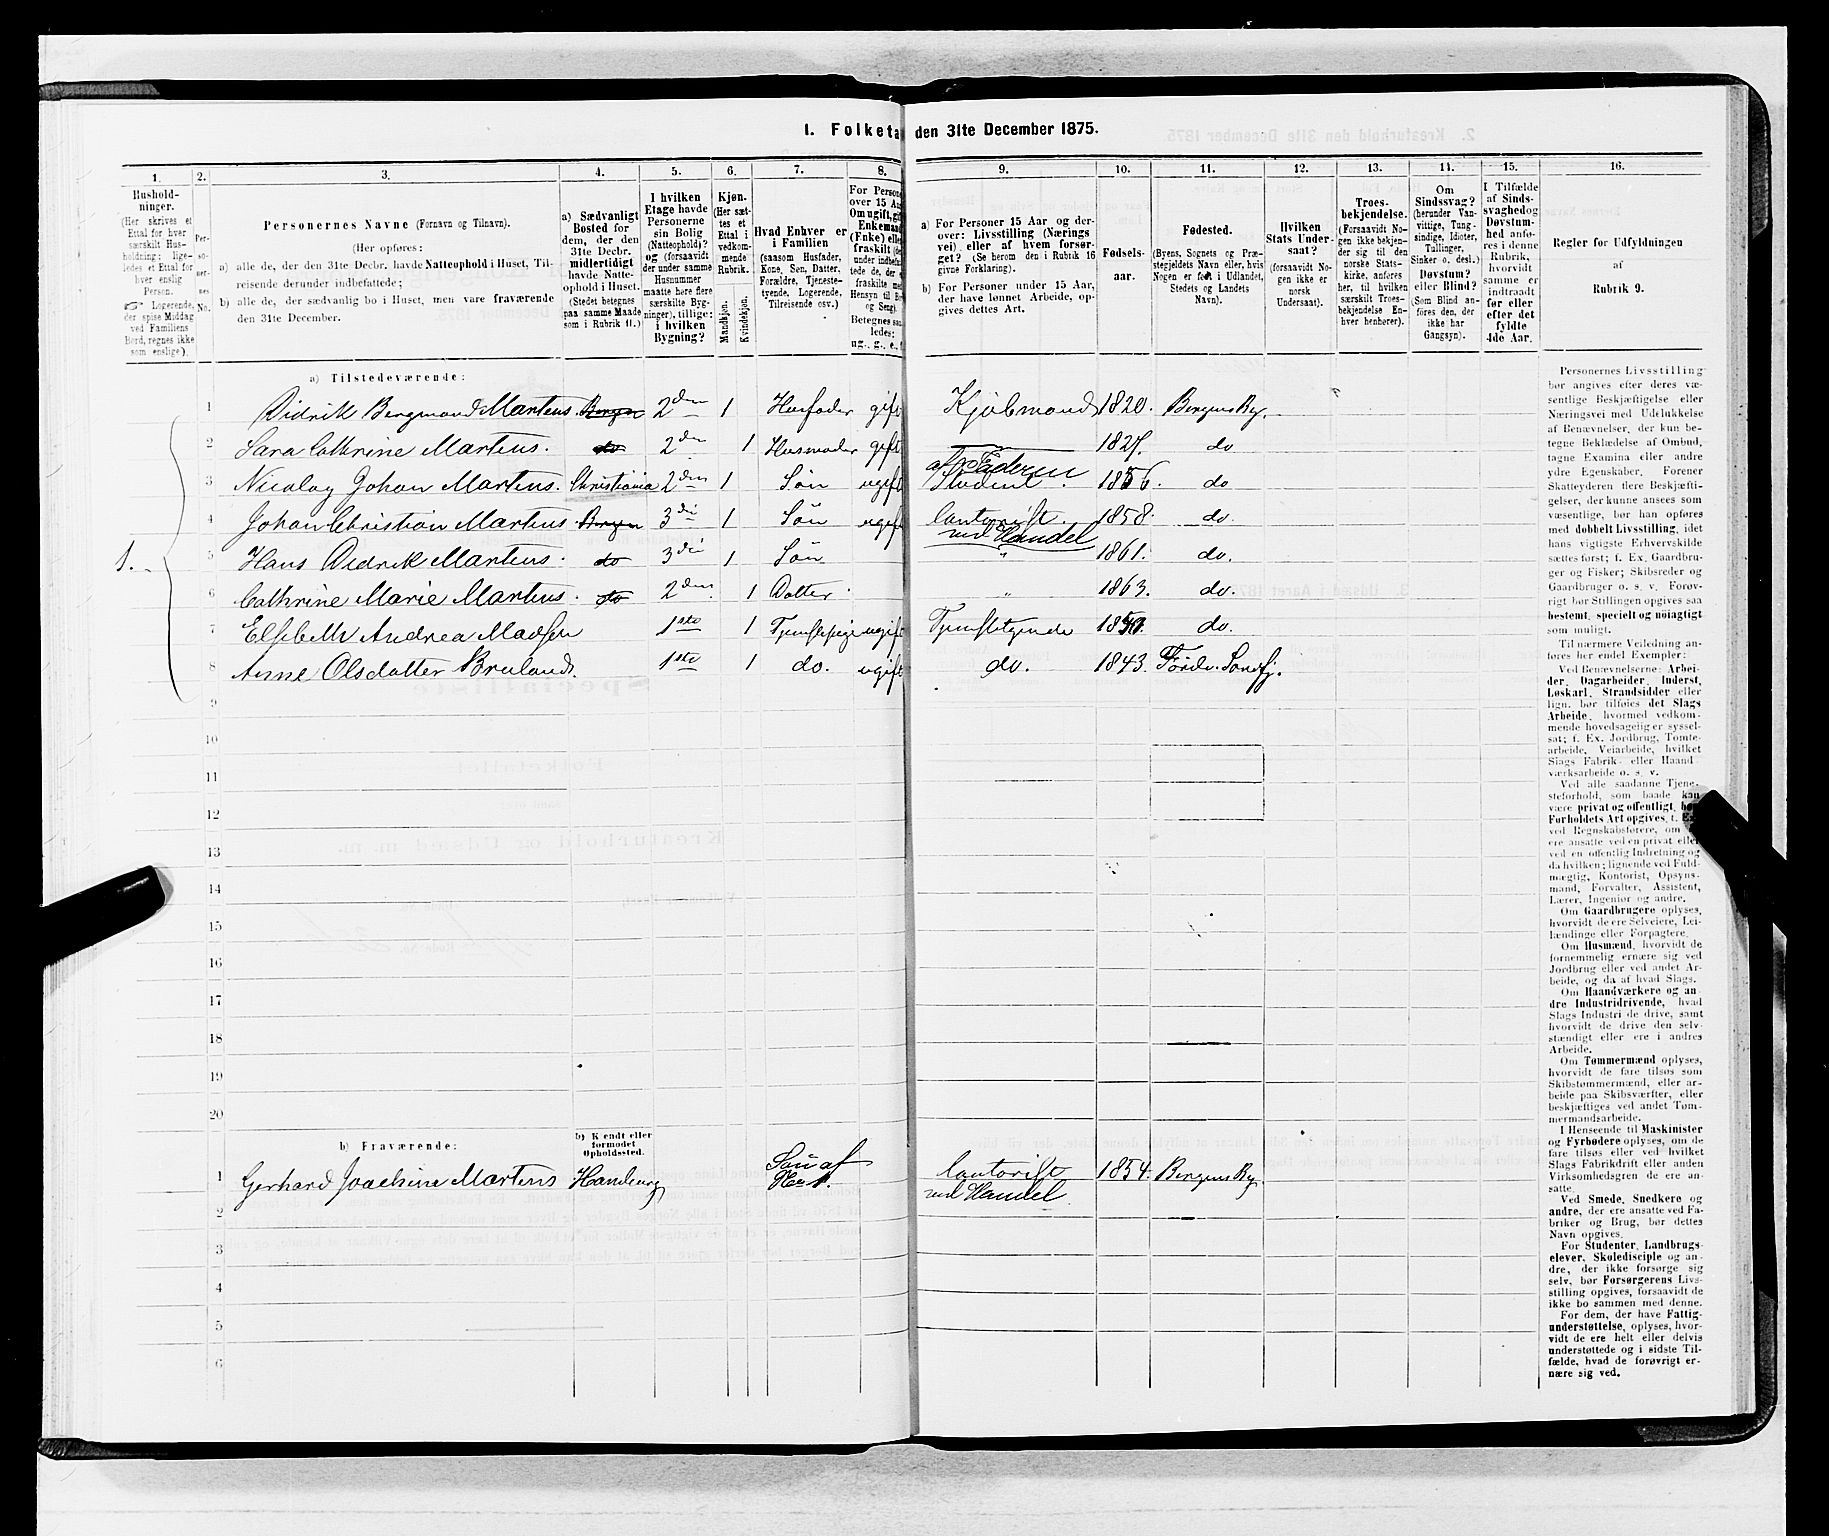 1. Folketa den 31te December 1875.
1. 2. 3. 4. 5. 6. 7. 8. 9. 10. 11. 12. 13. 14. 15. 16.
Hushold-
ninger.
(Her skrives et
Ettal for hver
særskilt Hus-
holdning; lige-
ledes et Ettal for
hver enslig
Person.
☞ Logerende,
der spise Middag
ved Familiens
Bord, regnes ikke
som enslige).
Per-
so-
ner-
nes
No.
Personernes Navne (Fornavn og Tilnavn).
(Her opføres:
a) alle de, der den 31te Decbr. havde Natteophold i Huset, Til-
reisende derunder indbefattede;
b) alle de, der sædvanlig bo i Huset, men vare fraværende
den 31te December.
a) Sædvanligt
Bosted for
dem, der den
31te Decbr.
midlertidigt
havde Natte-
ophold i Huset.
(Stedet betegnes
paa samme Maade
som i Rubrik 11.)
I hvilken
Etage havde
Personerne
sin Bolig
(Natteophold)?
og (forsaavidt
der under samme
Husnummer
maatte høre flere
særskilte Byg-
ninger), tillige:
i hvilken
Bygning?
Kjøn.
(Her sæt-
tes et
Ettal i
vedkom-
mende
Rubrik.
Mandkjøn.
Kvindekjøn.
Hvad Enhver er
i Familien
(saasom Husfader,
Kone, Søn, Datter,
Forældre, Tjeneste-
tyende, Logerende,
Tilreisende osv.)
For Persone
over 15 Aa
Om ugift, gif
Enkemand
(Enke) elle
fraskilt (de
under indbefa
tede de, der e
fraskilte med
Hensyn til Bo
og Seng).
Betegnes saa
ledes:
ug., g., e., f
a) For Personer 15 Aar og der-
over: Livsstilling (Nærings
vei) eller af hvem forsør-
get? (Se herom den i Rubrik 16
givne Forklaring).
b) For Personer under 15 Aar,
der have lønnet Arbeide, op-
gives dettes Art.
Fødsels-
aar.
Fødested.
(Byens, Sognets og Præ-
stegjeldets Navn eller, hvis
Nogen er født i Udlandet,
Stedets og Landets
Navn).
Hvilken
Stats Under-
saat?
(forsaavidt No-
gen ikke er
norsk
Undersaat).
Troes-
bekjendelse.
(Forsaavidt No-
gen ikke bekjen-
der sig til den
norske Stats-
kirke, anføres
her, til hvilken
særskilt Troes-
bekjendelse En-
hver henhører).
Om
Sindssvag?
(herunder Van-
vittige, Tung-
sindige, Idioter,
Tullinger,
Sinker o. desl.)
Døvstum?
eller Blind?
(Som Blind an-
føres den, der
ikke har
Gangsyn).
I Tilfælde
af Sinds-
svaghed og
Døvstum-
hed anfø-
res i denne
Rubrik,
hvorvidt
samme er
indtraadt
før eller
efter det
fyldte
4de Aar.
Regler for Udfyldningen
af
Rubrik 9.
a) Tilstedeværende:
1. 1 Didrik Bergmand Martens. Bergen 2den 1 Husfader gift Kjøbmand 1820. Bergens By.
2 Sara Cathrine Martens. do 2den 1 Husmoder gift 1827. do
3 Nicolay Johan Martens. Christiania 2den 1 Søn ugift af Faderen Student. 1856. do
4 Johan Christian Martens. Bergen 3die 1 Søn ugift Contorist ved Handel 1858. do.
5 Hans Didrik Martens. do 3die 1 Søn " 1861. do.
6 Cathrine Marie Martens. do 2den 1 Datter. " 1863. do.
7 Elsebeth Andrea Madsen 1ste 1 Tjenestepige ugift Tjenestetyende do.
8 Anne Olsdatter Bruland. 1ste 1 do. ugift do. 1843. Førde. Søndfj.
9
10
11
12
13
14
15
16
17
18
19
20
b) Fraværende:
b) Kjendt eller
formodet
Opholdssted.
1 Gerhard Joachim Martens Hamburg Søn af No 1. Contorist ved Handel 1854. Bergens By.
2
3
4
5
6
Personernes Livsstilling
bør angives efter deres væ-
sentlige Beskjæftigelse eller
Næringsvei med Udelukkelse
af Benævnelser, der kun be-
tegne Beklædelse af Ombud,
tagne Examina eller andre
ydre Egenskaber. Forener
Skatteyderen flere Beskjæfti-
gelser, der kunne ansees som
væsentlige, bør han opføres
med dobbelt Livsstilling, idet
hans vigtigste Erhvervskilde
sættes først; f. Ex. Gaardbru-
ger og Fisker; Skibsreder og
Gaardbruger o. s. v. Forøv-
rigt bør Stillingen opgives saa
bestemt, specielt og nøiagtigt
som muligt.
Til nærmere Veiledning an-
føres her endel Exempler:
Ved Benævnelserne: Arbei-
der, Dagarbeider, Inderst,
Løskarl, Strandsidder eller
lign. bør tilføies det Slags
Arbeide, hvormed vedkom-
mende hovedsagelig er syssel-
sat; f. Ex. Jordbrug, Tomte-
arbeide, Veiarbeide, hvilket
Slags Fabrik- eller Haand-
værksarbeide o. s. v.
Ved alle saadanne Tjene-
steforhold, som baade kan
være privat og offentligt, bør
Forholdets Art opgives, t. E
ved Regnskabsførere, om
ere ansatte ved en privat eller
ved en offentlig Indretning og
da hvilken; lignende ved Fuld-
mægtig, Kontorist, Opsyns-
mand, Forvalter, Assistent,
Lærer, Ingeniør og andre.
Om Gaardbrugere oplyses,
hvorvidt de ere Selveiere, Lei-
lændinge eller Forpagtere.
Om Husmænd, hvorvidt de
fornemmelig ernære sig ved
Jordbrug eller ved andet Ar-
beide, og da af hvad Slags.
Om Haandværkere og an-
dre Industridrivende, hvad
Slags Industri de drive, samt
hvorvidt de drive den selv-
stændigt eller ere i andres
Arbeide.
Om Tømmermænd oplyses,
hvorvidt de fare tilsøs som
Skibstømmermænd, eller ar-
beide paa Skibsværfter, eller
beskjæftiges ved andet Tøm-
mermandsarbeide.
I Henseende til Maskinister
og Fyrbødere oplyses, om de
fare tilsøs eller ved hvilket
Slags Fabrikdrift eller anden
Virksomhedsgren de ere an-
satte.
Ved Smede, Snedkere og
andre, der ere ansatte ved Fa-
briker og Brug, bør dettes
Navn opgives.
For Studenter, Landbrugs-
elever, Skoledisciple og an-
dre, der ikke forsørge sig
selv, bør Forsørgerens Livs-
stilling opgives, forsaavidt de
ikke bo sammen med denne.
For dem, der have Fattig-
understøttelse, oplyses, hvor-
vidt de ere helt eller delvis
understøttede og i sidste Til-
fælde, hvad de forøvrigt er-
nære sig ved.